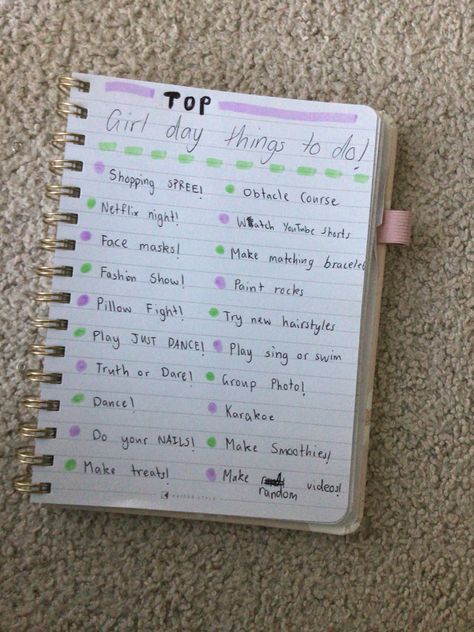 TOP
Girl day things to do!
Shopping SPREE!
Netflix night!
Face masks!
Fashion Show!
Pillow Fight!
Play JUST DANCE!
Truth or Dare!
Dance!
Do your NAILS!
Make treats!
Obtacle Course
Watch YouTube shorts
Make matching bracelet
Paint rocks
Try new hairstyles
Play sing or swim
Group Photo!
Karakoe
Make Smoothies!
Make random videos!